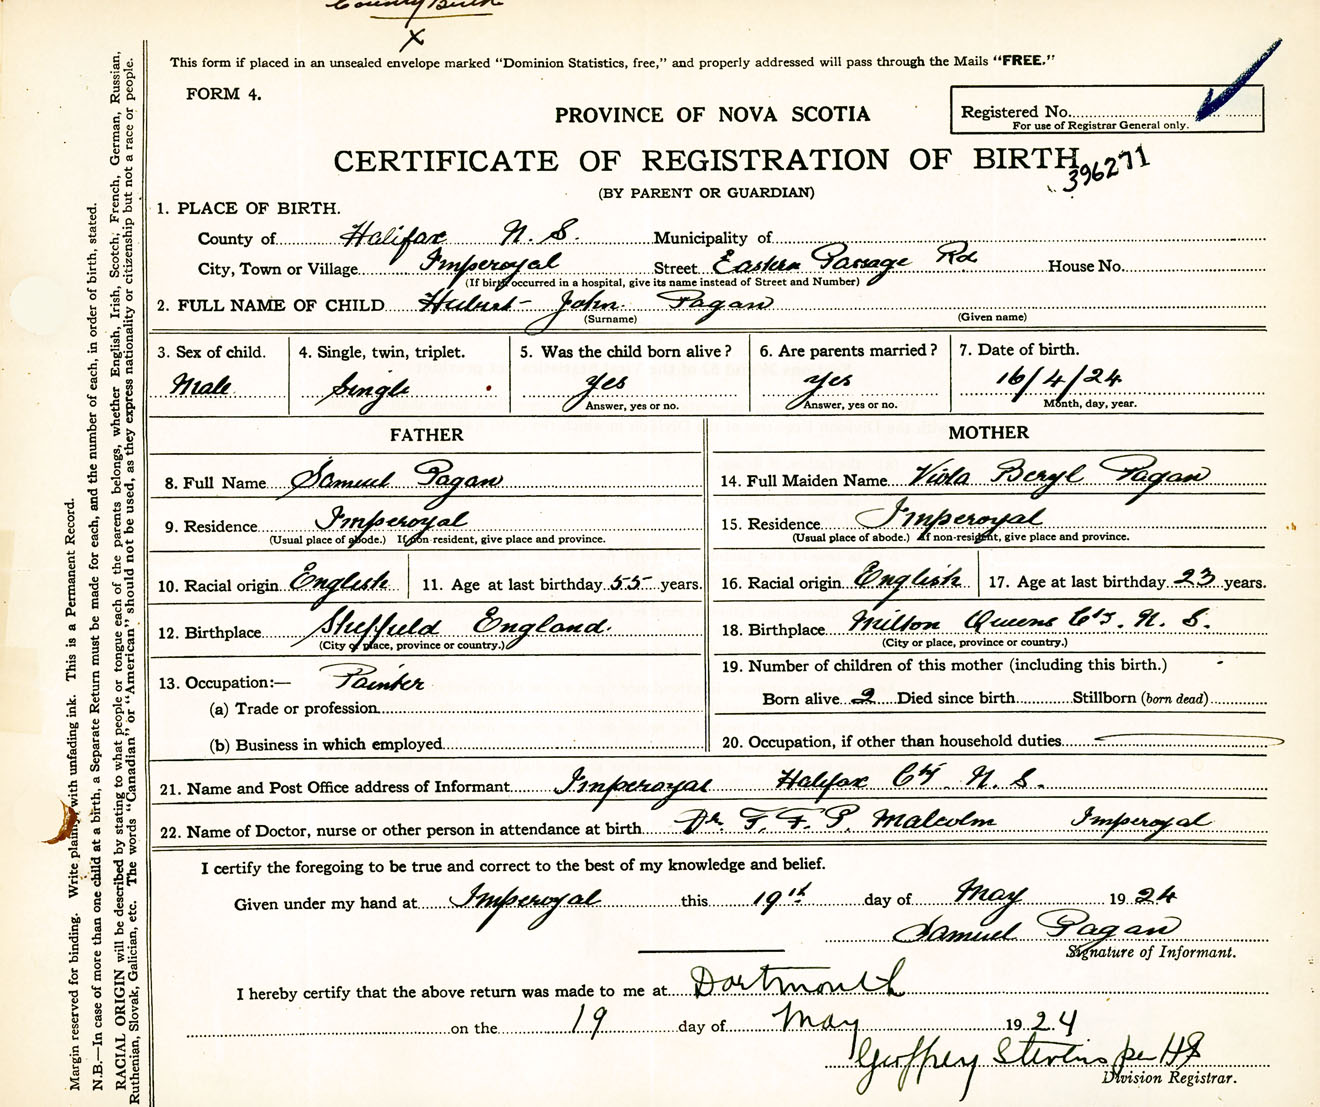 County Birth
X
This form if placed in an unsealed envelope marked "Dominion Statistics, free," and properly addressed will pass through the Mails "FREE."
FORM 4.
PROVINCE OF NOVA SCOTIA
Registered No.
For use of Registrar General only.
CERTIFICATE OF REGISTRATION OF BIRTH
396271
(BY PARENT OR GUARDIAN)
1. PLACE OF BIRTH.
County of Halifax N. S. Municipality of
City, Town or Village Imperoyal Street Eastern Passage Rd House No.
(If birth occurred in a hospital, give its name instead of Street and Number)
2. FULL NAME OF CHILD Hubert John Pagan
(Surname) (Given name)
3. Sex of child. 4. Single, twin, triplet. 5. Was the child born alive? 6. Are parents married? 7. Date of birth.
Male Single Yes Yes 16/4/24
Answer, yes or no. Answer, yes or no. Month, day, year.
FATHER MOTHER
8. Full Name Samuel Pagan 14. Full Maiden Name Viola Beryl Pagan
9. Residence Imperoyal 15. Residence Imperoyal
(Usual place of abode.) If non-resident, give place and province. (Usual place of abode.) If non-resident, give place and province.
10. Racial origin English 11. Age at last birthday 55 years. 16. Racial origin English 17. Age at last birthday 23 years.
12. Birthplace Sheffield England. 18. Birthplace Milton Queens Cty. N. S.
(City or place, province or country.) (City or place, province or country.)
13. Occupation:— Painter 19. Number of children of this mother (including this birth.)
(a) Trade or profession Born alive 2 Died since birth Stillborn (born dead)
(b) Business in which employed 20. Occupation, if other than household duties
21. Name and Post Office address of Informant Imperoyal Halifax Cty. N. S.
22. Name of Doctor, nurse or other person in attendance at birth Dr. F. F. P. Malcolm Imperoyal
I certify the foregoing to be true and correct to the best of my knowledge and belief.
Given under my hand at Imperoyal this 19th day of May 1924
Samuel Pagan
Signature of Informant.
I hereby certify that the above return was made to me at Dartmouth
on the 19 day of May 1924
Geoffrey Stevens per HS
Division Registrar.
Margin reserved for binding. Write plainly with unfading ink. This is a Permanent Record.
N.B.—In case of more than one child at a birth, a Separate Return must be made for each, and the number of each, in order of birth, stated.
RACIAL ORIGIN will be described by stating to what people or tongue each of the parents belongs, whether English, Irish, Scotch, French, German, Russian,
Ruthenian, Slovak, Galician, etc. The words "Canadian" or "American" should not be used, as they express nationality or citizenship but not a race or people.